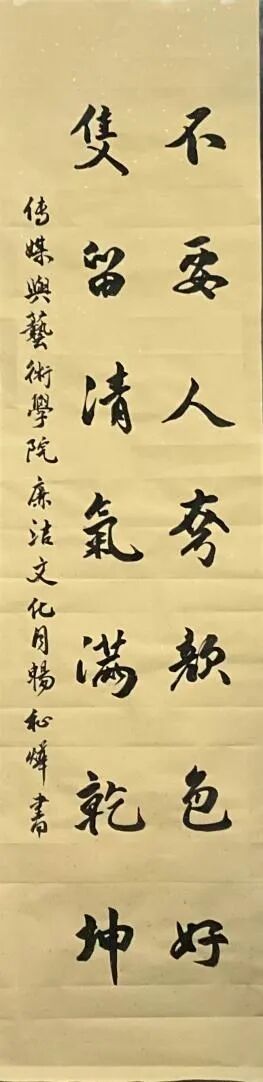 不要人夸颜色好
隻留清氣滿乾坤
傳媒與藝術學院廉洁文化月暢和燁書